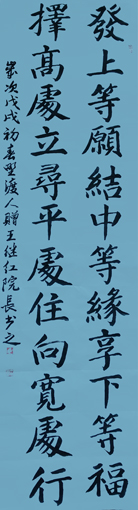 發上等願結中等緣享下等福
擇高處立尋平處住向寬處行
歲次戊戌初春聖渡人贈王继红院長書之